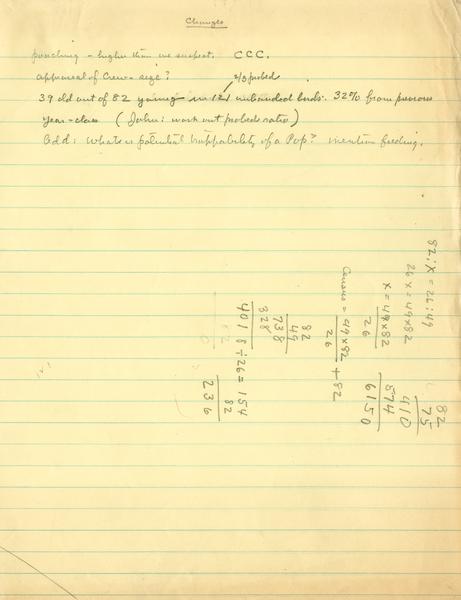 Changes
poaching - higher than we suspect. CCC.
appraisal of Crew-size?
2/3 probed
39 old out of 82 young in 121 unbanded birds. 32% from previous
year-class (John: work out probeds ratio)
Odd: what is potential trappability of a Pop? mention feeding.
82:X = 26:49
26 X = 49x82
X = 49x82
26
Census = 49x82 + 82
26
82
49
738
328
4018 ÷ 26 = 154
82
236
82
75
410
574
6150